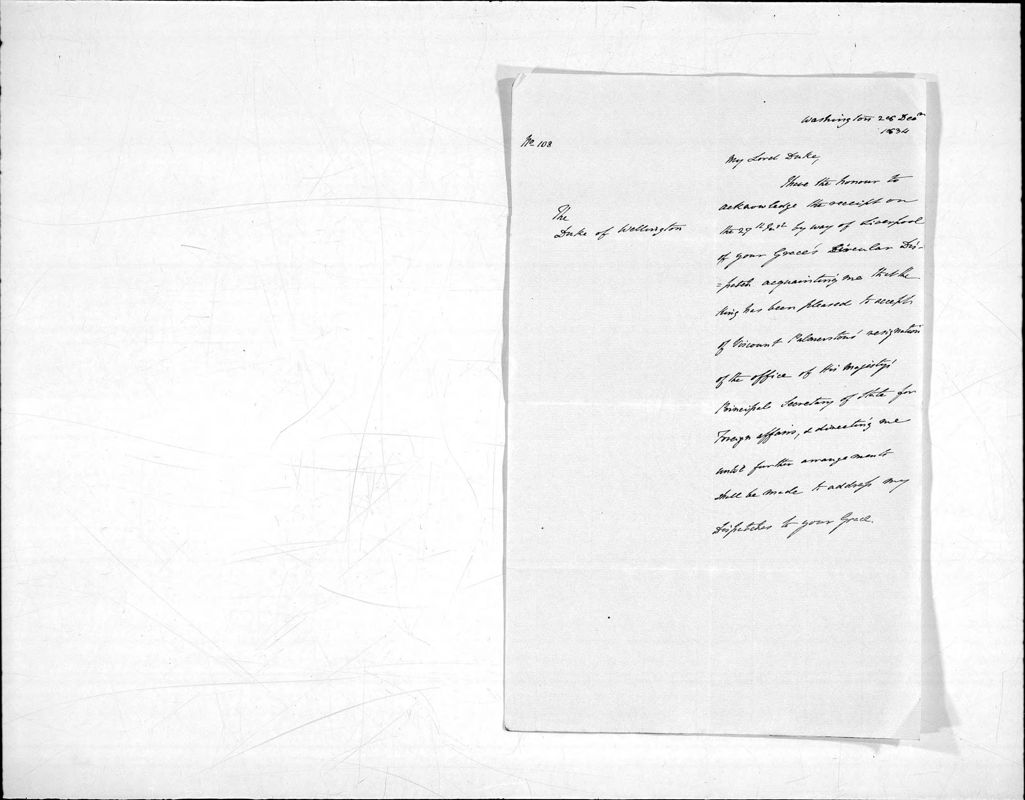 Washington 28 Decr
1834
No. 108
My Lord Duke,
I have the honour to
acknowledge the receipt on
the 27th Inst. by way of Liverpool
of your Grace's Circular Dis-
=patch acquainting me that the
King has been pleased to accept
of Viscount Palmerston's resignation
of the office of His Majesty's
Principal Secretary of State for
Foreign affairs, & directing me
until further arrangements
shall be made to address my
Dispatches to your Grace.
The
Duke of Wellington